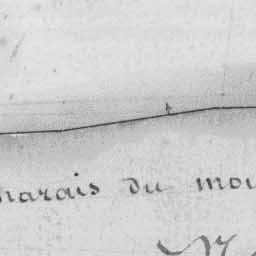 marais du mou